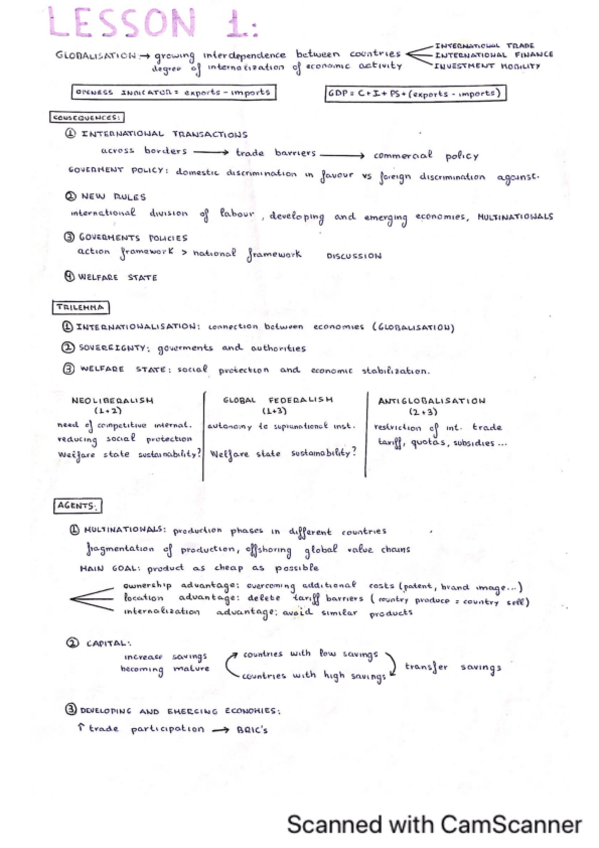 LESSON 1:
GLOBALISATION → growing interdependence between countries
INTERNATIONAL TRADE
INTERNATIONAL FINANCE
INVESTMENT MOBILITY
degree of internalization of economic activity
OPENESS INDICATOR = exports - imports
GDP = C + I + PS + (exports - imports)
CONSEQUENCES:
① INTERNATIONAL TRANSACTIONS
across borders → trade barriers → commercial policy
GOVERMENT POLICY: domestic discrimination in favour vs foreign discrimination against.
② NEW RULES
international division of labour, developing and emerging economies, MULTINATIONALS
③ GOVERMENTS POLICIES
action framework > national framework DISCUSSION
④ WELFARE STATE
TRILEMMA
① INTERNATIONALISATION: connection between economies (GLOBALISATION)
② SOVEREIGNTY: goverments and authorities
③ WELFARE STATE: social protection and economic stabilization.
NEOLIBERALISM
(1+2)
need of competitive internat.
reducing social protection
Welfare state sustainability?
GLOBAL FEDERALISM
(1+3)
autonomy to supranational inst.
Welfare state sustainability?
ANTIGLOBALISATION
(2+3)
restriction of int. trade
tariff, quotas, subsidies...
AGENTS:
① MULTINATIONALS: production phases in different countries
fragmentation of production, offshoring global value chains
MAIN GOAL: product as cheap as possible
ownership advantage: overcoming additional costs (patent, brand image...)
location advantage: delete tariff barriers (country produce = country sell)
internalization advantage: avoid similar products
② CAPITAL:
increase savings
becoming mature
countries with low savings
countries with high savings
transfer savings
③ DEVELOPING AND EMERGING ECONOMIES:
↑ trade participation → BRIC's
Scanned with CamScanner